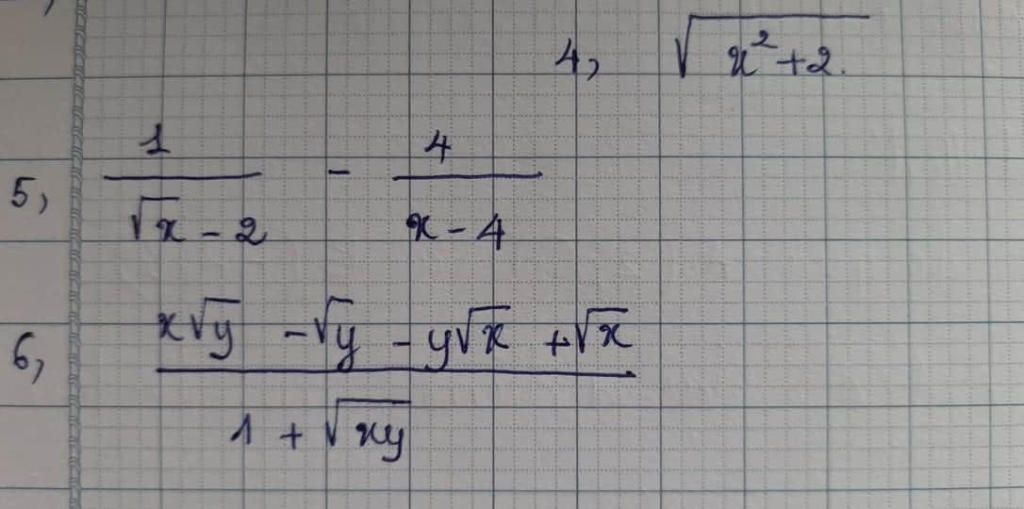 4, √(x²+2.)
5, 1/(√x - 2) - 4/(x - 4)
6, (x√y - √y - y√x + √x)/(1 + √(xy))